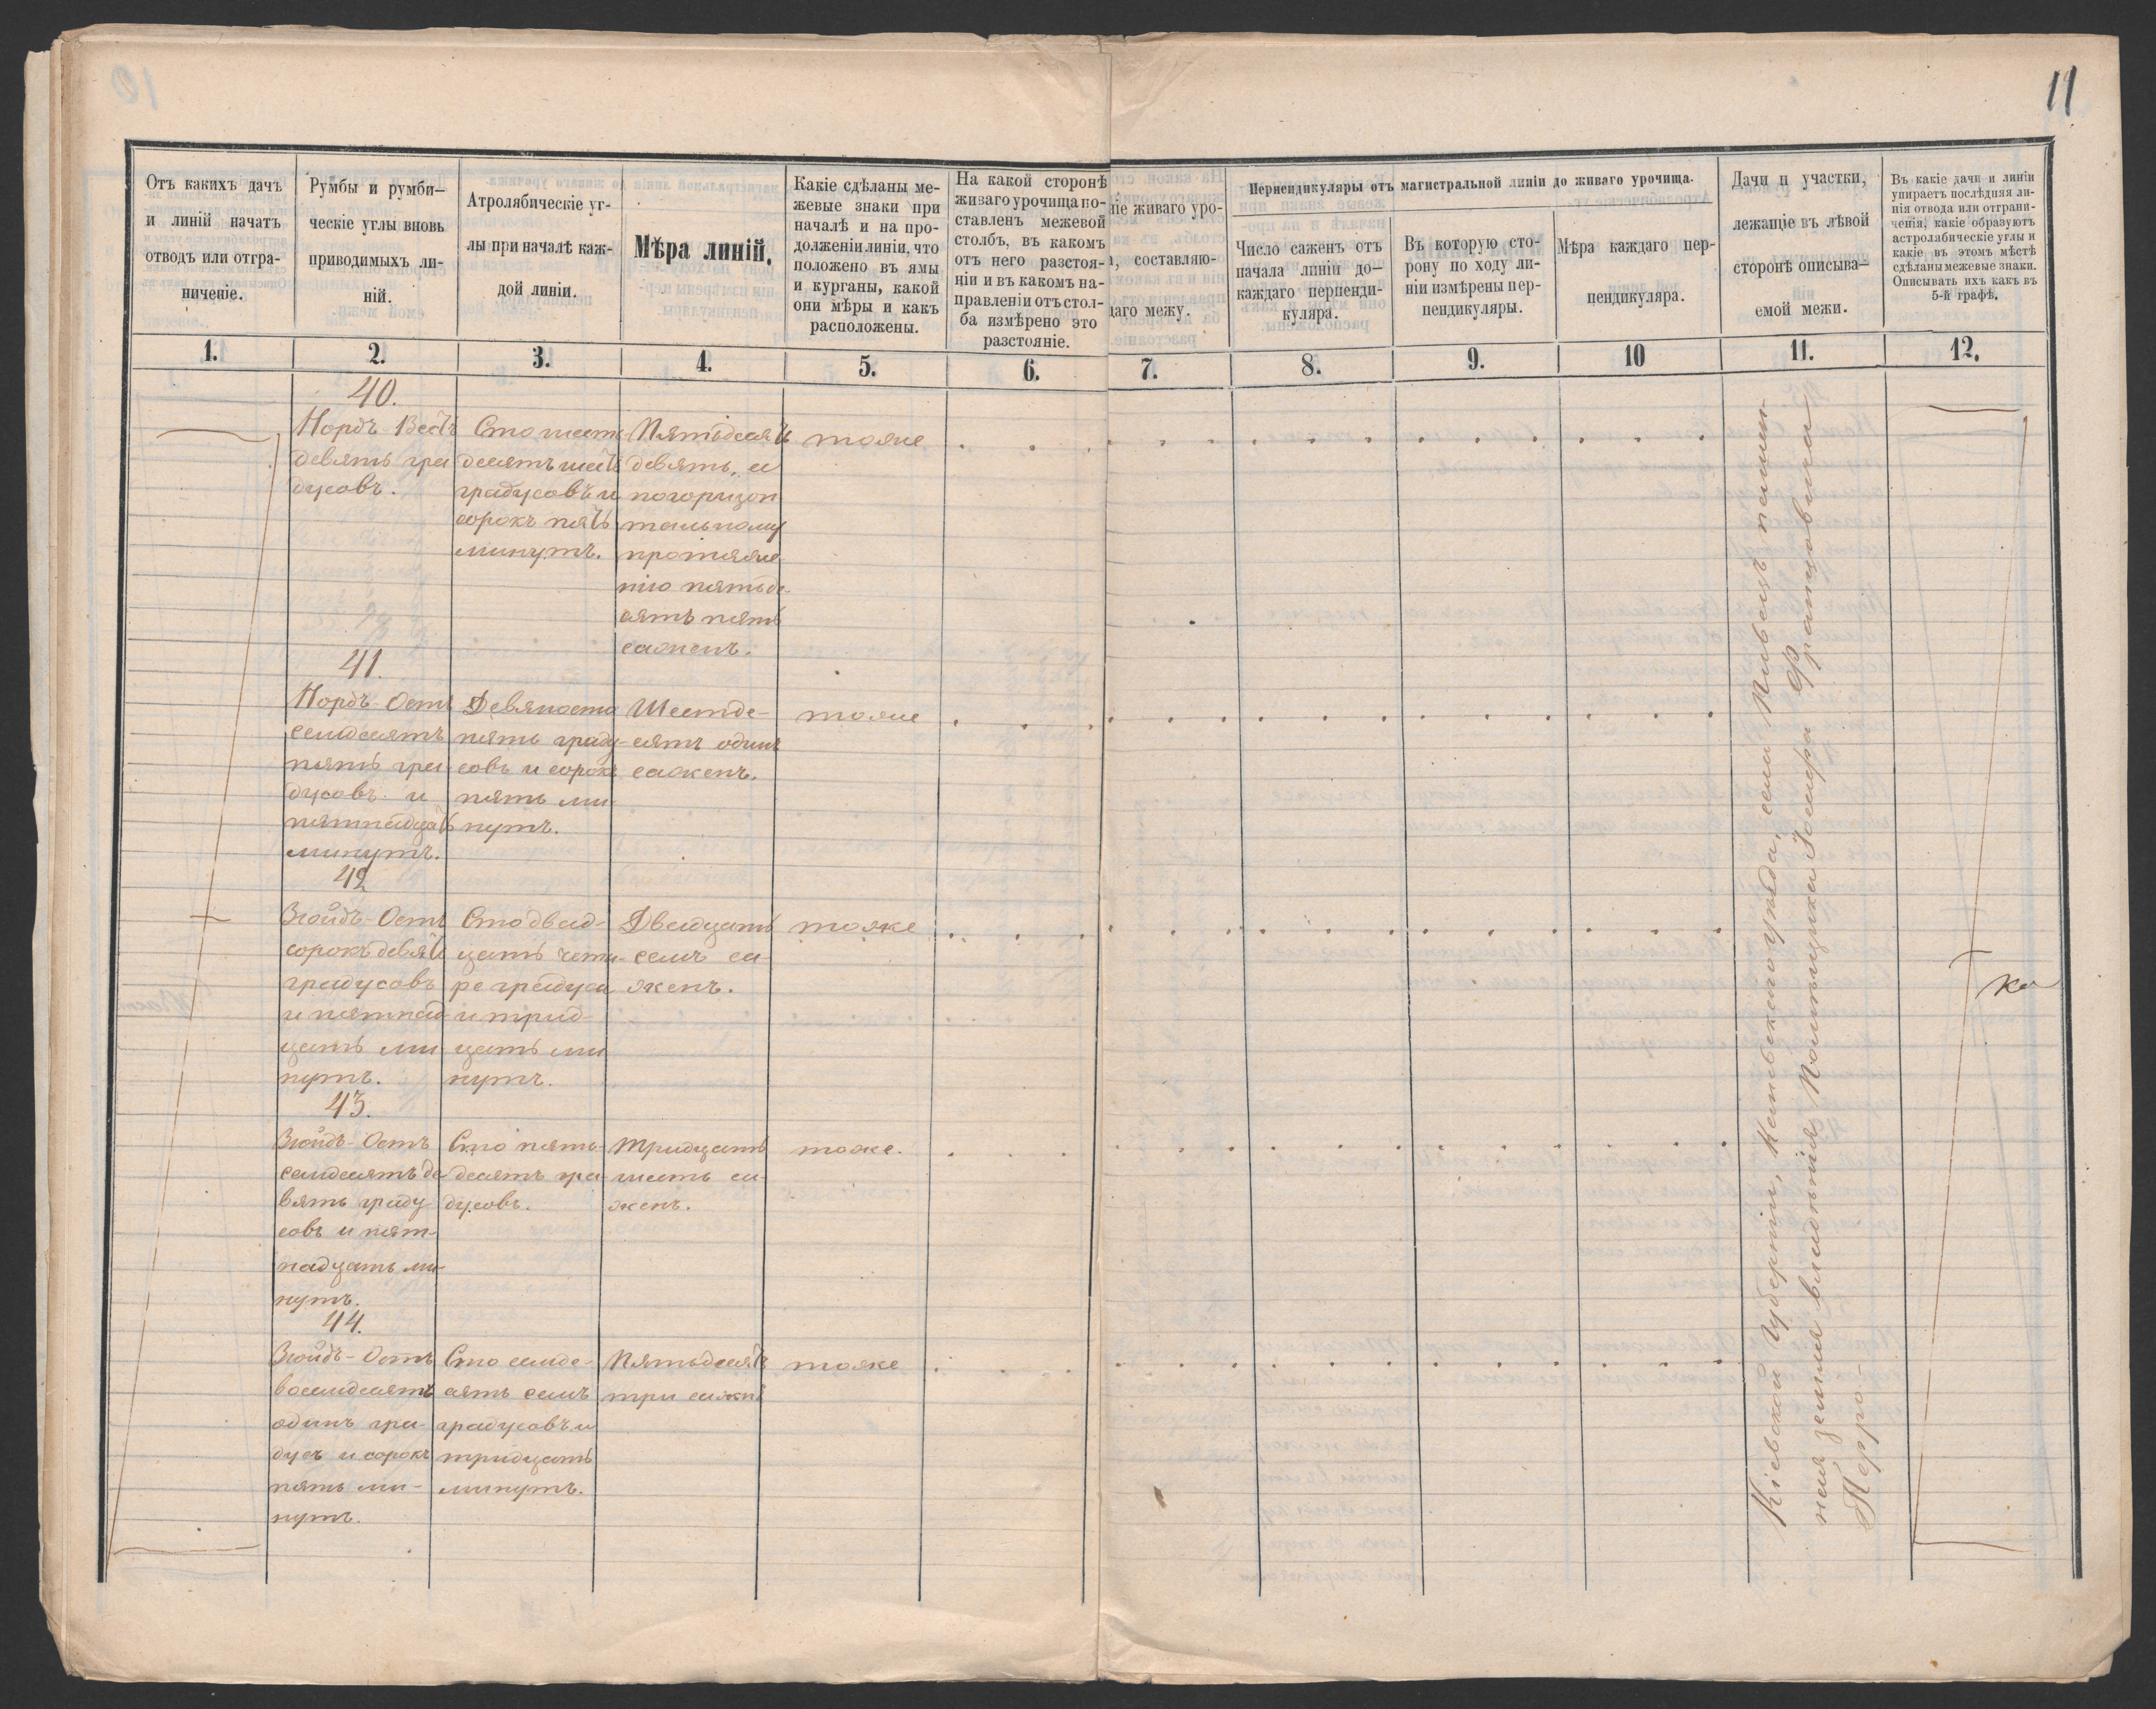 11
Отъ какихъ дачъ
и линій начатъ
отводъ или отгра-
ниченіе.
Румбы и румби-
ческіе углы вновь
приводимыхъ ли-
ній.
Атролябическіе уг-
лы при началѣ каж-
дой линіи.
Мѣра линій.
Какіе сдѣланы ме-
жевые знаки при
началѣ и на про-
долженіи линіи, что
положено въ ямы
и курганы, какой
они мѣры и какъ
расположены.
На какой сторонѣ
живаго урочища по-
ставленъ межевой
столбъ, въ какомъ
отъ него разстоя-
ніи и въ какомъ на-
правленіи отъ стол-
ба измѣрено это
разстояніе.
ніе живаго уро-
, составляю-
щаго межу.
Перпендикуляры отъ магистральной линіи до живаго урочища.
Число саженъ отъ
начала линіи до-
каждаго перпенди-
куляра.
Въ которую сто-
рону по ходу ли-
ніи измѣрены пер-
пендикуляры.
Мѣра каждаго пер-
пендикуляра.
Дачи и участки,
лежащіе въ лѣвой
сторонѣ описыва-
емой межи.
Въ какіе дачи и линіи
упираетъ послѣдняя ли-
нія отвода или отграни-
ченія, какіе образуютъ
астролябическіе углы и
какіе въ этомъ мѣстѣ
сдѣланы межевые знаки.
Описывать ихъ какъ въ
5-й графѣ.
1. 2. 3. 4. 5. 6. 7. 8. 9. 10 11. 12.
40.
Нордъ-Вестъ
девять гра
дусовъ.
Сто шесть
десятъ шесть
градусовъ и
сорокъ пять
минутъ.
Пятьдесятъ
девять, а
погоризон
тальному
протяже
нію пятьде-
сятъ пять
саженъ.
тоже
41.
Нордъ-Остъ
семдесятъ
пять гра-
дусовъ и
пятнадцать
минутъ.
Девяносто
пять граду-
совъ и сорокъ
пять ми-
нутъ.
Шестьде-
сятъ одинъ
саженъ.
тоже
42
Зюйдъ-Остъ
сорокъ девять
градусовъ
и пятнад-
цать ми
нутъ.
Сто двад-
цать четы-
ре градуса
и трид-
цать ми
нутъ.
Двадцать
семъ са-
женъ.
тоже
43.
Зюйдъ-Остъ
семдесятъ де
вять граду
совъ и пят-
надцать ми-
нутъ.
Сто пять-
десятъ гра-
дусовъ.
Тридцать
шесть са-
женъ.
тоже.
44.
Зюйдъ-Остъ
восемдесятъ
одинъ гра-
дусъ и сорокъ
пять ми-
нутъ.
Сто семде-
сятъ семъ
градусовъ и
тридцать
минутъ.
Пятьдесятъ
три сажня
тоже
Кіевской Губерніи, уѣзда, села
ная земля владѣнія Помѣщика Францовича